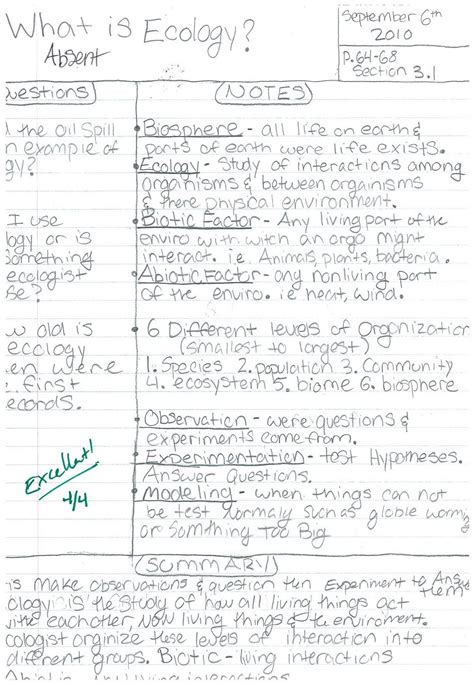 What is Ecology?
Absent
September 6th
2010
p.64-68
Section 3.1
uestions
NOTES
the oil Spill
n example of
gy?
I use
logy or is
Something
ecologist
se?
w old is
ecology
en were
e first
ecords.
Excellent!
4/4
• Biosphere - all life on earth &
parts of earth were life exists.
• Ecology - Study of interactions among
organisms & between organisms
& there physical environment.
• Biotic Factor - Any living part of the
enviro with witch an orgo might
interact. i.e. Animals, plants, bacteria.
• Abiotic Factor - any nonliving part
of the enviro. ie heat, wind.
• 6 Different levels of Organization
(smallest to largest)
1. Species 2. population 3. Community
4. ecosystem 5. biome 6. biosphere
• Observation - were questions &
experiments come from.
• Experimentation - test Hypotheses.
Answer Questions.
• Modeling - when things can not
be test normaly such as globle worming
or Somthing Too Big
SUMMARY
is make observations & question then Experiment to Answer
them
ology is the study of how all living things act
with eachother, Now living things & the enviroment.
cologist orginize these levels of interaction into
different groups. Biotic - living interactions